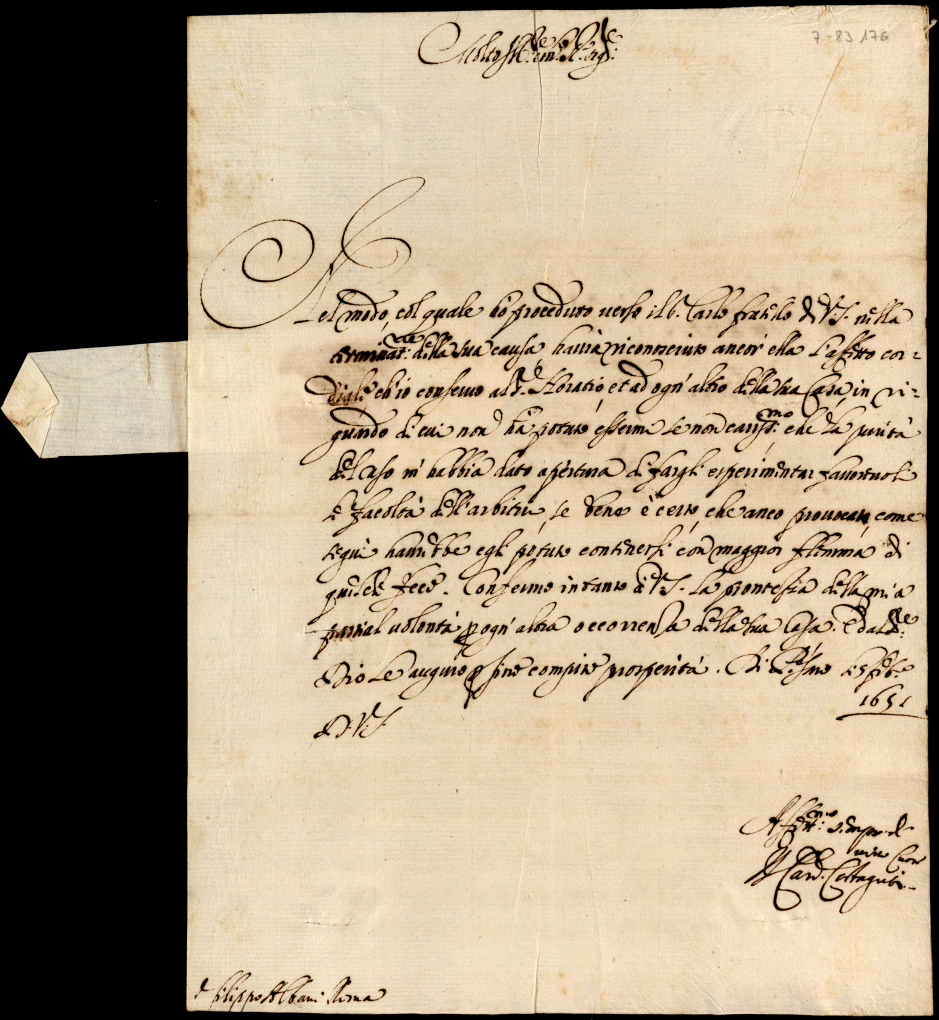 7-83 176
Molto Ill.re
Nel modo, col quale ho proceduto verso il S. Carlo fratello di V.S. nella
della sua causa havrà riconosciuto ancor' ella l'affetto cor=
diale ch'io conservo al S. Horatio, et ad ogn' altro della sua Casa, in ri=
guardo di cui non ha potuto essermi se non cariss.mo che la
del caso m' habbia dato apertura di fargli esperimentar favorevoli
le facoltà dell'arbitrio, se bene è certo, che anco provocato, come
segui havrebbe egli potuto contenersi con maggior flemma di
quel che fece. Confermo intanto à V.S. la prontezza della mia
parzial volontà p ogn' altra occorrenza della sua Casa. E dal S.re
Dio le auguro p fine compite prosperità. Di Pesaro 15
1651
D. V.S.
Aff.mo sempre di
vero Cuore
Il Card. Costaguti
S. Filippo Albani Roma